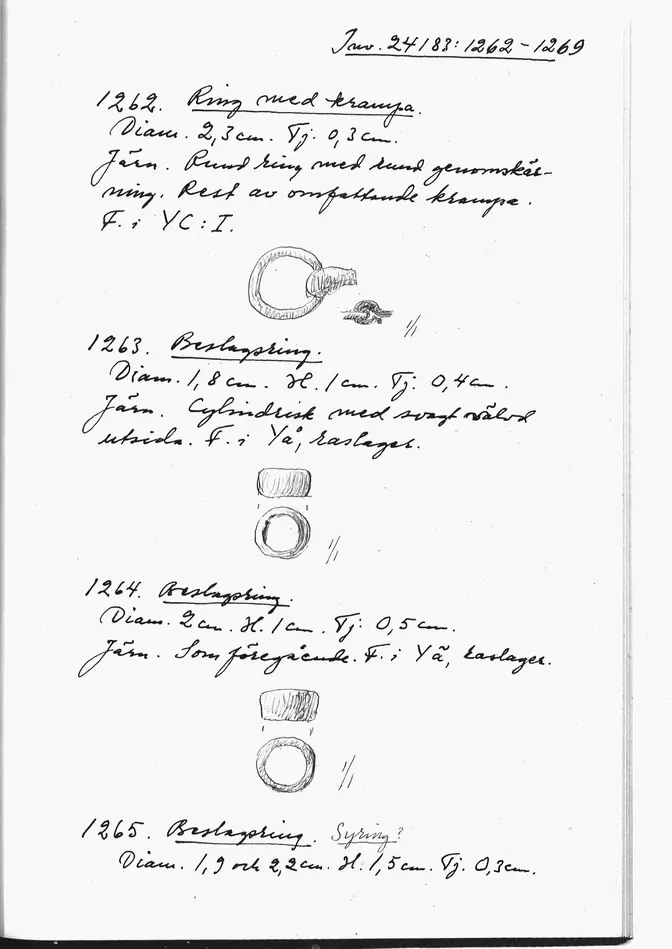 Inv. 24183:1262-1269
1262. Ring med krampa.
Diam. 2,3 cm. Tj. 0,3 cm.
Järn. Rund ring med rund genomskär-
ning. Rest av omfattande krampa.
F. i YC:I.
1/1
1263. Beslagsring.
Diam. 1,8 cm. H. 1 cm. Tj. 0,4 cm.
Järn. Cylindrisk med svagt välvd
utsida. F. i Yå, raslager.
1/1
1264. Beslagsring.
Diam. 2 cm. H. 1 cm. Tj. 0,5 cm.
Järn. Som föregående. F. i Yå, raslager.
1/1
1265. Beslagsring. Syring?
Diam. 1,9 och 2,2 cm. H. 1,5 cm. Tj. 0,3 cm.